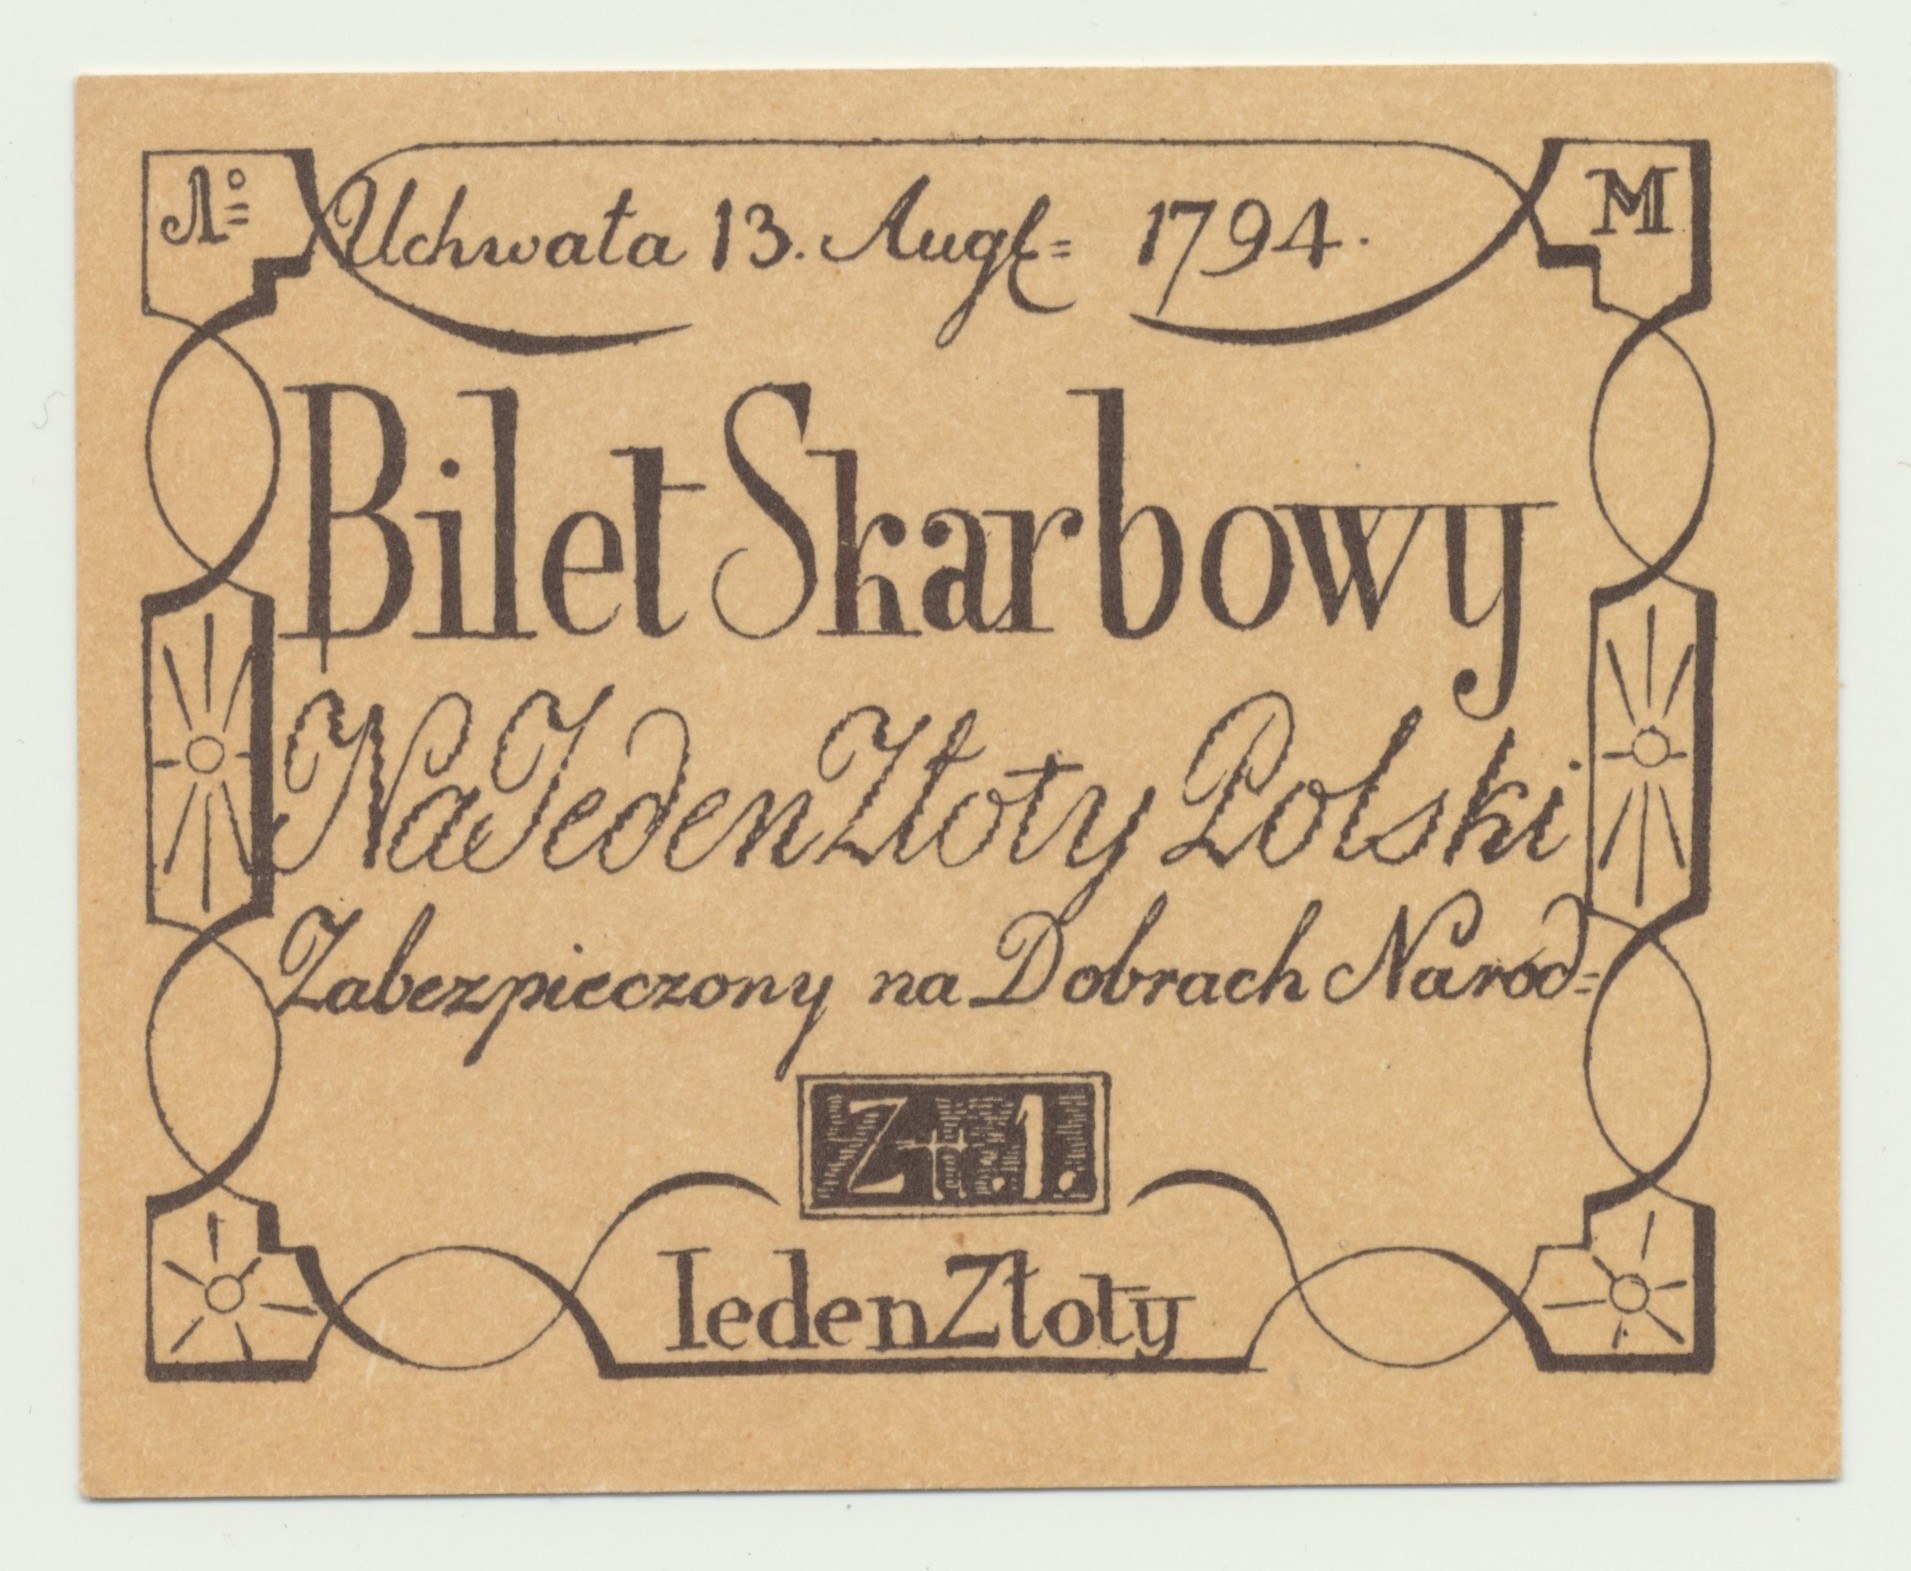 No M
Uchwała 13. Augt= 1794.
Bilet Skarbowy
Na Jeden Złoty Polski
Zabezpieczony na Dobrach Narod=
Zł. 1.
Ieden Złoty